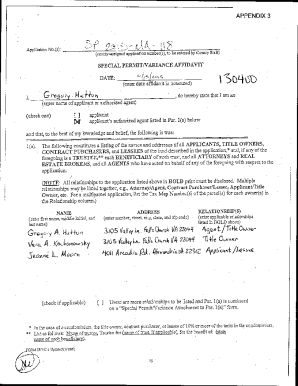 APPENDIX 3
Application No.(s): SP 2015-MA-118
(county-assigned application number(s), to be entered by County Staff)
SPECIAL PERMIT/VARIANCE AFFIDAVIT
DATE:
(enter date affidavit is notarized)
130450
I, Gregory Hutton, do hereby state that I am an
(enter name of applicant or authorized agent)
(check one) [ ] applicant
applicant's authorized agent listed in Par. 1(a) below
and that, to the best of my knowledge and belief, the following is true:
1(a). The following constitutes a listing of the names and addresses of all APPLICANTS, TITLE OWNERS,
CONTRACT PURCHASERS, and LESSEES of the land described in the application,* and, if any of the
foregoing is a TRUSTEE,** each BENEFICIARY of such trust, and all ATTORNEYS and REAL
ESTATE BROKERS, and all AGENTS who have acted on behalf of any of the foregoing with respect to the
application:
(NOTE: All relationships to the application listed above in BOLD print must be disclosed. Multiple
relationships may be listed together, e.g., Attorney/Agent, Contract Purchaser/Lessee, Applicant/Title
Owner, etc. For a multiparcel application, list the Tax Map Number(s) of the parcel(s) for each owner(s) in
the Relationship column.)
NAME ADDRESS RELATIONSHIP(S)
(enter first name, middle initial, and last name) (enter number, street, city, state, and zip code) (enter applicable relationships listed in BOLD above)
Gregory A. Hutton 3105 Valley Ln Falls Church VA 22044 Agent/Title Owner
Vera A. 3105 Valley Ln Falls Church VA 22044 Title Owner
Jeanne L. Moore Alexandria VA Applicant/Lessee
(check if applicable) [ ] There are more relationships to be listed and Par. 1(a) is continued
on a "Special Permit/Variance Attachment to Par. 1(a)" form.
* In the case of a condominium, the title owner, contract purchaser, or lessee of 10% or more of the units in the condominium.
** List as follows: Name of trustee, Trustee for (name of trust, if applicable), for the benefit of: (state
name of each beneficiary).